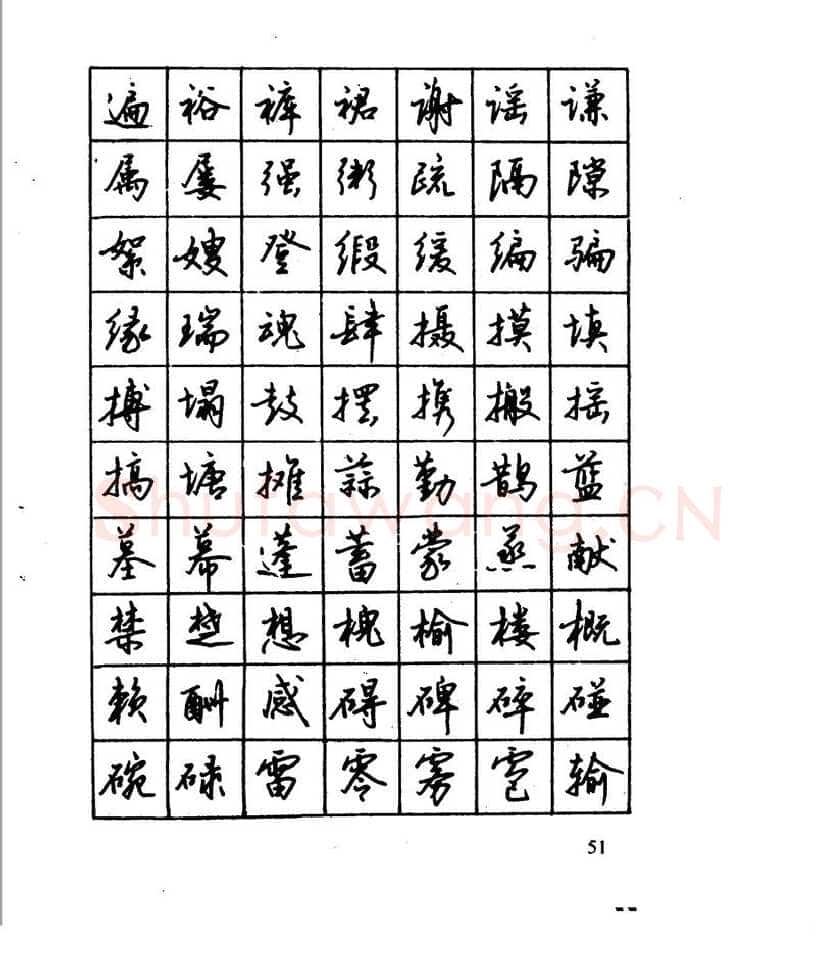 遍 裕 裤 裙 谢 谣 谦
属 屡 强 粥 疏 隔 隙
絮 嫂 登 缎 缓 编 骗
缘 瑞 魂 肆 摄 摸 填
搏 塌 鼓 摆 携 搬 摇
搞 塘 摊 蒜 勤 鹊 蓝
墓 幕 蓬 蓄 蒙 蒸 献
禁 楚 想 槐 榆 楼 概
赖 酬 感 碍 碑 碎 碰
碗 碌 雷 零 雾 雹 输
Shufawang.CN
51